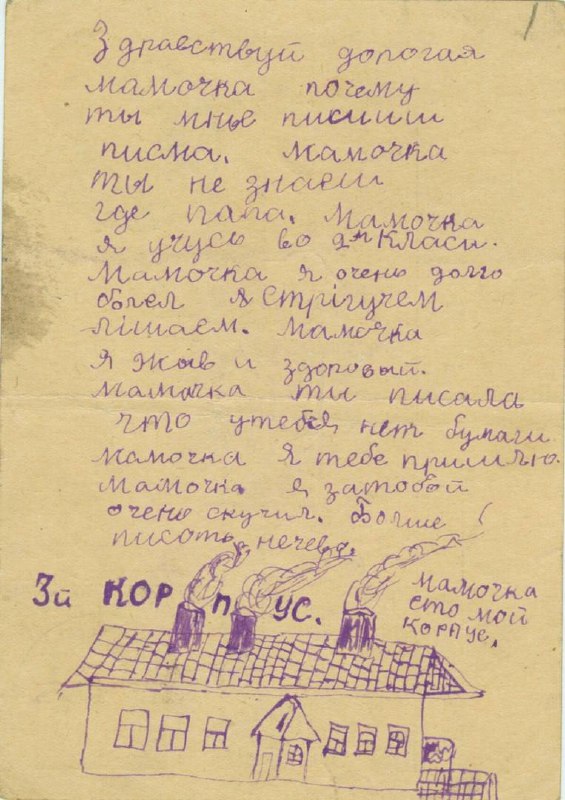 Здравствуй дорогая
мамочка почему
ты мнье писиши
писма. мамочка
ты не знаеш
где папа. Мамочка
я учусь во 2м Класи.
Мамочка я очень долго
болел я Стрігучем
лішаем. Мамочка
я жыв и здоровый.
мамочка ты писала
что утебя, нет бумаги
мамочка Я тебе пришлю.
мамочка я затобой
очень скучил. Болше
писать нечево.
3й КОРПУС.
мамочка
ето мой
корпус.